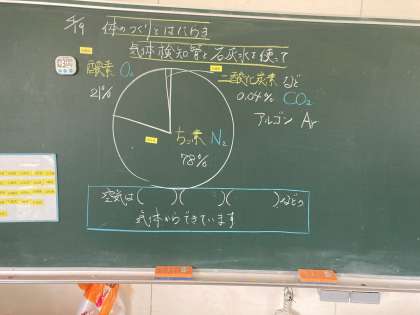 5/19 体のつくりとはたらき
気体検知管と石灰水を使って
酸素 O₂
21%
二酸化炭素 など
0.04% CO₂
アルゴン Ar
ちっ素 N₂
78%
空気は( )( )( )などの
気体からできています